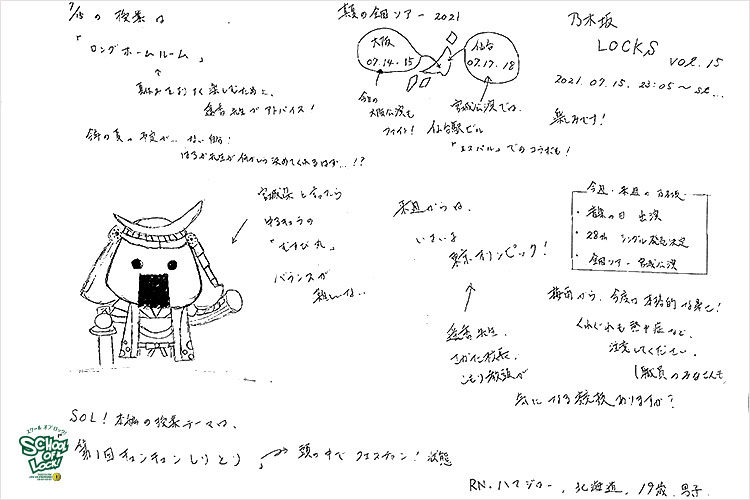 7/15 の 授業 は
「ロング ホーム ルーム」
↑
夏休みをおもいっきり楽しむために、
遥香先生がアドバイス!
今年の夏の予定が… ない俺!
はるか先生が何かしら決めてくれるはず…!?
真夏の全国ツアー 2021
大阪
07.14.15
仙台
07.17.18
今日の
大阪公演も
ファイト!
宮城公演では、
仙台駅ビル
「エスパル」でのコラボも!
乃木坂
LOCKS vol.15
2021.07.15. 23:05〜
楽しみです!
宮城県と言ったら
ゆるキャラの
「むすび丸」
バランスが
難しいな…
来週からは、
いよいよ
東京オリンピック!
↑
遥香先生、
さかた校長、
こもり教頭が
気になる競技ありますか?
今週・来週の乃木坂
・音楽の日 出演
・28th シングル発売決定
・全国ツアー 宮城公演
梅雨から、今度は本格的な暑さ!
くれぐれも熱中症など、
注意してください。
(職員のみなさんも
SOL! 本日の授業テーマは、
「第1回チョンチョンしりとり」
頭の中で クエスチョン! 状態
スクール オブ ロック!
SCHOOL OF LOCK!
RN. ハマジロー, 北海道, 19歳. 男子.